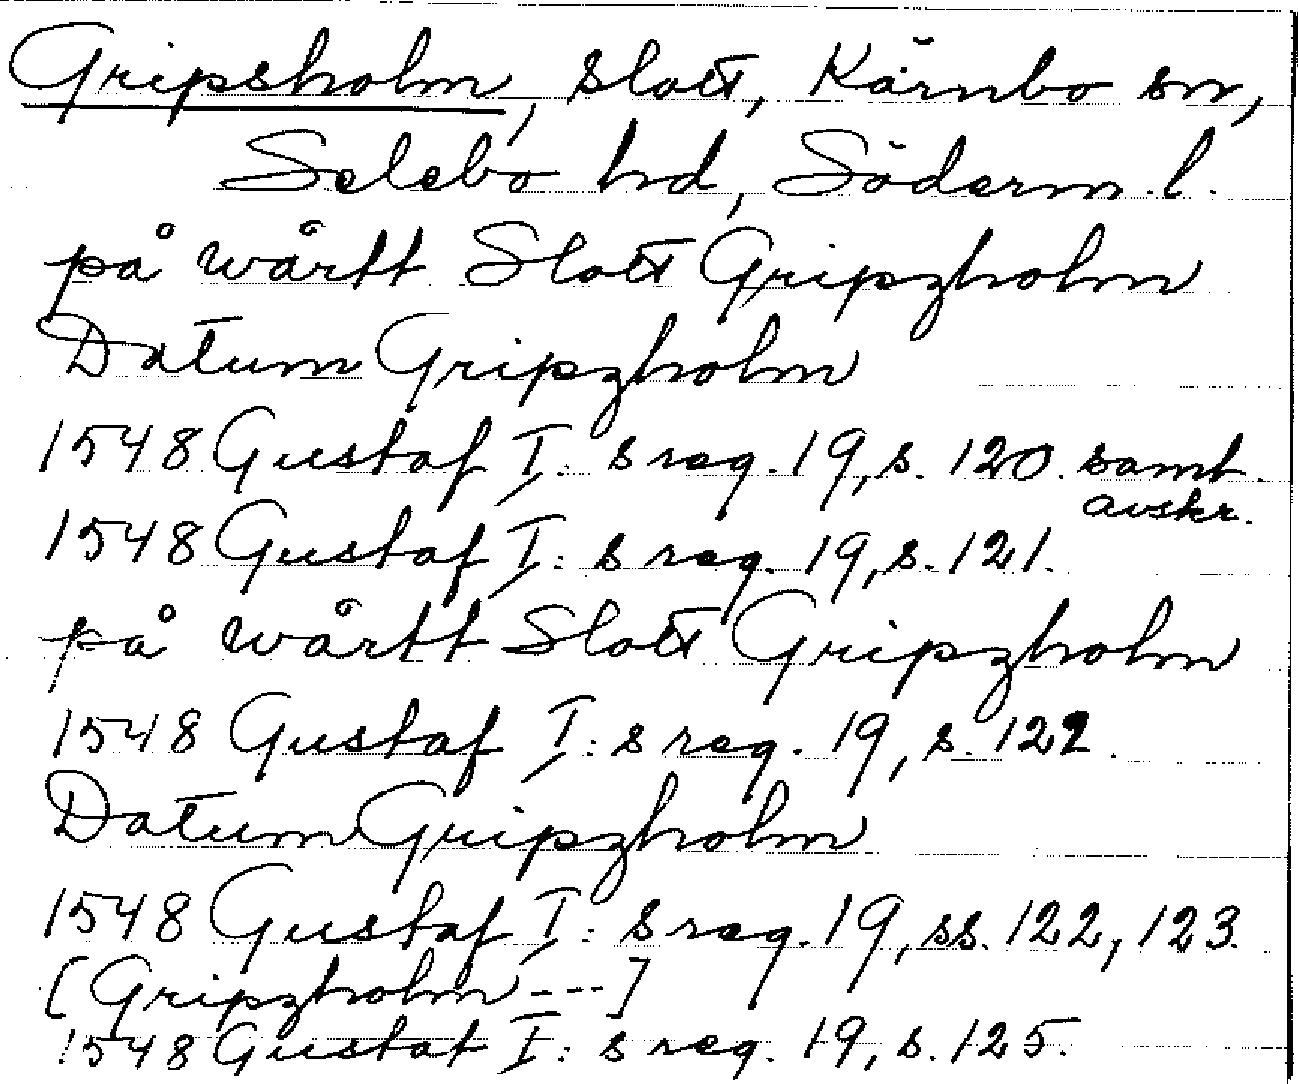 Gripsholm, slott, Kärnbo sn,
Selebo hd, Söderm. l.
på wårtt Slott Gripzholm
Datum Gripzholm
1548 Gustaf I: s reg. 19, s. 120. samt
avskr.
1548 Gustaf I: s reg. 19, s. 121.
på wårtt Slott Gripzholm
1548 Gustaf I: s reg. 19, s. 122.
Datum Gripzholm
1548 Gustaf I: s reg. 19, ss. 122, 123.
[Gripzholm ---]
1548 Gustaf I: s reg. 19, s. 125.